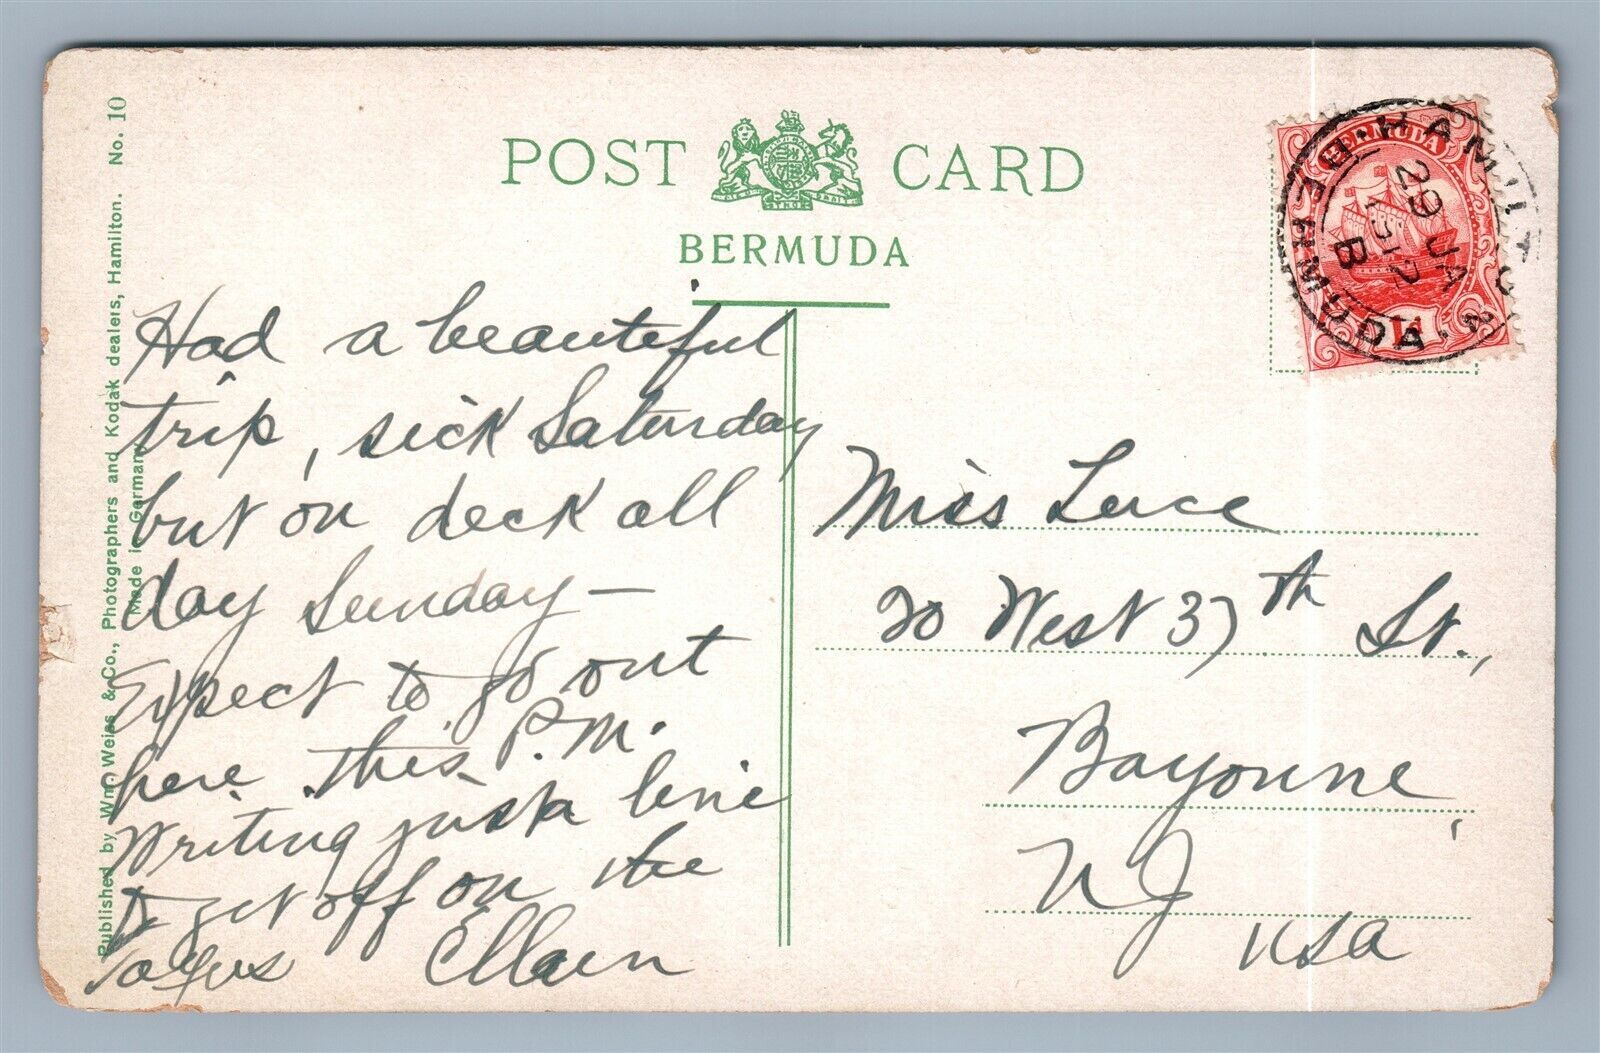 POST CARD
BERMUDA
Published by Wm. Weiss & Co., Photographers and Kodak dealers, Hamilton. No. 10
Made in Germany
Had a beautiful
trip, sick Saturday
but on deck all
day Sunday —
Expect to go out
here this P.M.
Writing just a line
to get off on the
Miss Luce
20 West 37th St.,
Bayonne
NJ
USA
BERMUDA
1d
HAMILTON
BERMUDA
29 JA
1912
B